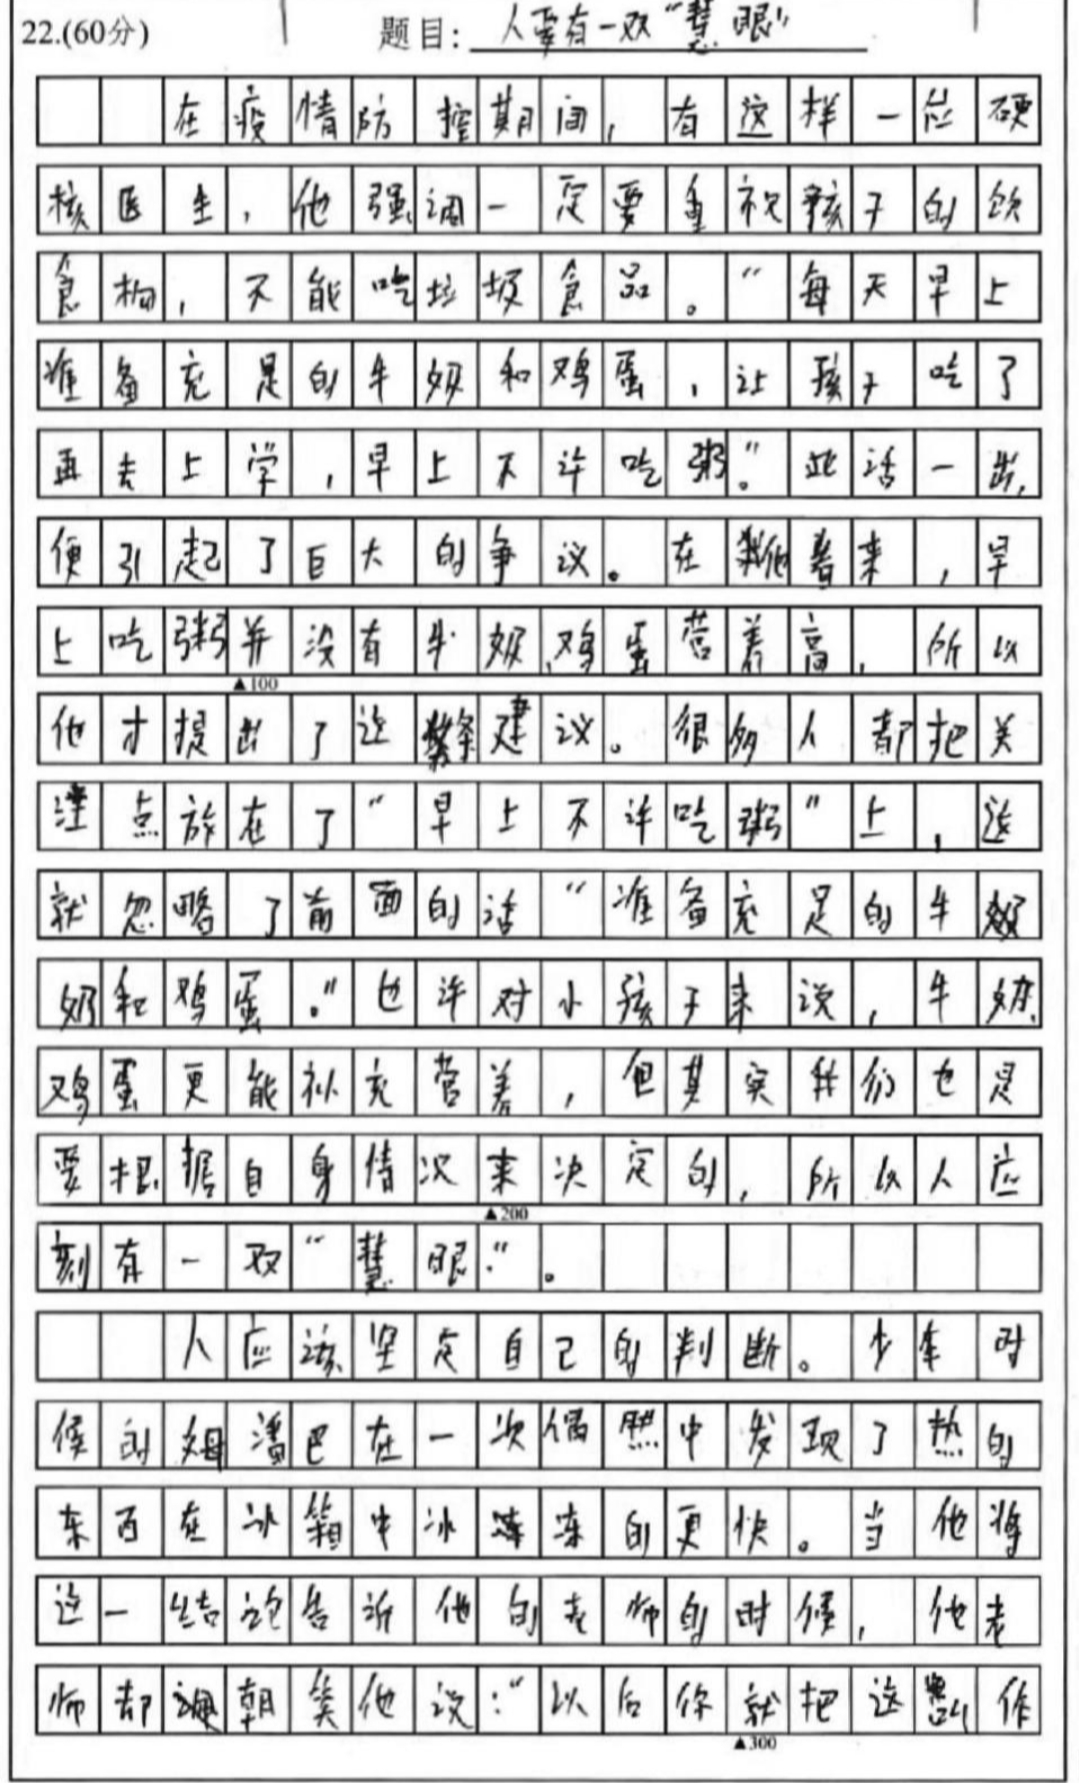 22.(60分) 题目: 人要有一双“慧眼”
在疫情防控期间,有这样一位硬
核医生,他强调一定要重视孩子的饮
食构,不能吃垃圾食品。“每天早上
准备充足的牛奶和鸡蛋,让孩子吃了
再去上学,早上不许吃粥”。此话一出,
便引起了巨大的争议。在他看来,早
上吃粥并没有牛奶、鸡蛋营养高,所以
▲100
他才提出了这条建议。很多人都把关
注点放在了“早上不许吃粥”上,这
就忽略了前面的话“准备充足的牛
奶和鸡蛋。”也许对小孩子来说,牛奶、
鸡蛋更能补充营养,但其实我们也是
要根据自身情况来决定的,所以人应
▲200
刻有一双“慧眼”。
人应该坚定自己的判断。少年时
候的姆潘巴在一次偶然中发现了热的
东西在冰箱中冰冻的更快。当他将
这一结论告诉他的老师的时候,他老
师却嘲笑他说:“以后你就把这叫作
▲300